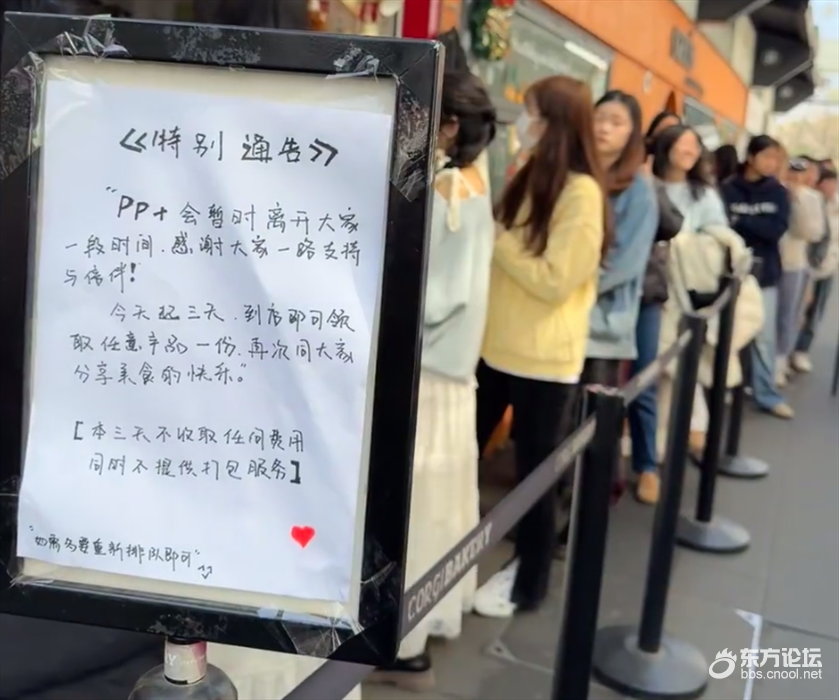 《特别通告》
"PP+会暂时离开大家
一段时间.感谢大家一路支持
与陪伴!
今天起三天.到店即可领
取任意产品一份.再次同大家
分享美食的快乐。"
[本三天不收取任何费用
同时不提供打包服务]
"如需多要重新排队即可"
CORGIBAKERY
东方论坛
bbs.cnool.net